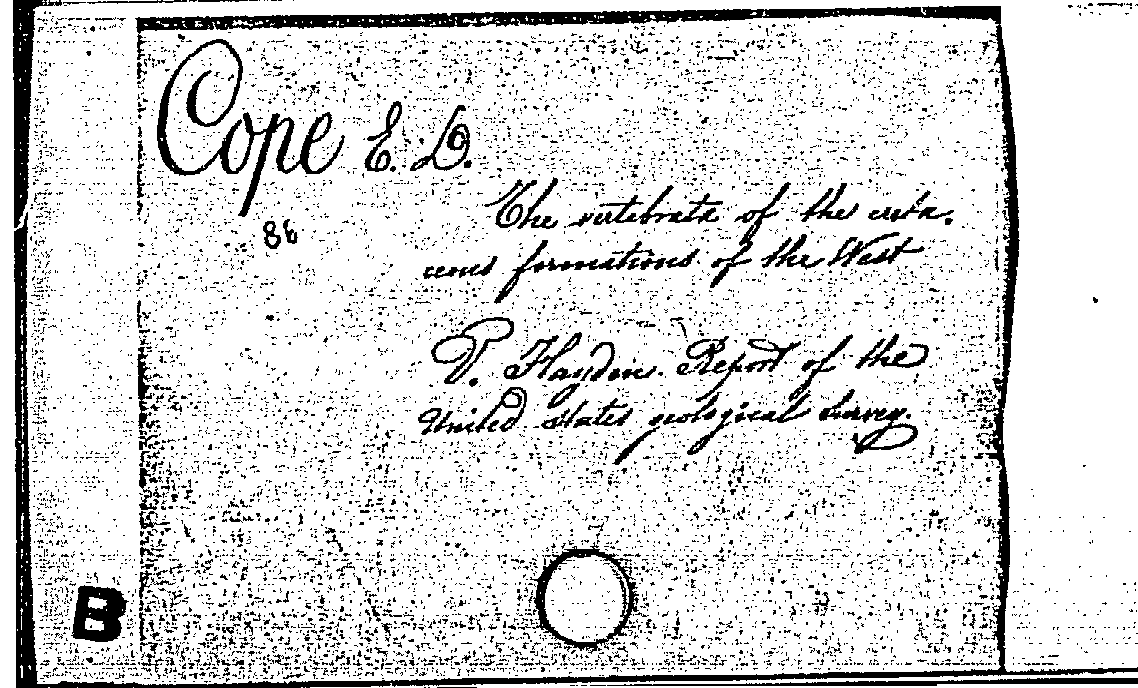 Cope E. D.
The vertebrata of the creta-
ceous formations of the West
86
V. Hayden. Report of the
United States geological survey.
B